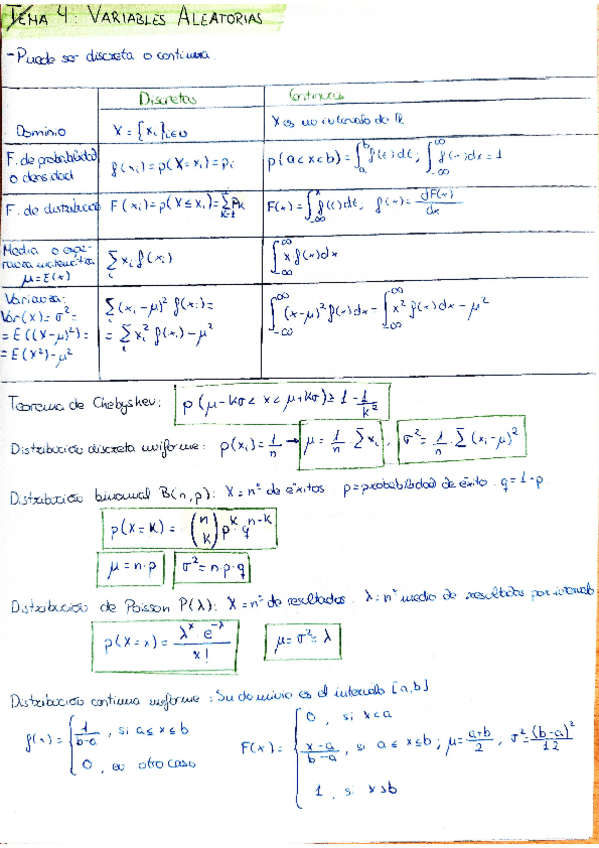 TEMA 4: VARIABLES ALEATORIAS
- Puede ser discreta o continua.
Discretas Continuas
Dominio X = {xᵢ}ᵢ∈ℕ X es un intervalo de ℝ
F. de probabilidad o densidad f(xᵢ) = p(X=xᵢ) = pᵢ p(a<x<b) = ∫ₐᵇ f(t)dt ; ∫₋∞^∞ f(x)dx = 1
F. de distribución F(xᵢ) = p(X≤xᵢ) = Σ pₖ F(x) = ∫₋∞^x f(t)dt, f(x) = dF(x)/dx
Media o esperanza matemática μ = E(x) Σᵢ xᵢ f(xᵢ) ∫₋∞^∞ x f(x)dx
Varianza: Var(x) = σ² = E((X-μ)²) = E(X²) - μ² Σᵢ (xᵢ-μ)² f(xᵢ) = Σᵢ xᵢ² f(xᵢ) - μ² ∫₋∞^∞ (x-μ)² f(x)dx - ∫₋∞^∞ x² f(x)dx - μ²
Teorema de Chebyshev: p(μ-kσ < x < μ+kσ) ≥ 1 - 1/k²
Distribución discreta uniforme: p(xᵢ) = 1/n → μ = 1/n · Σxᵢ , σ² = 1/n · Σ(xᵢ-μ)²
Distribución binomial B(n,p): X = nº de éxitos p = probabilidad de éxito. q = 1-p.
p(X=k) = (n k) pᵏ · qⁿ⁻ᵏ
μ = n·p σ² = n·p·q
Distribución de Poisson P(λ): X = nº de resultados. λ = nº medio de resultados por intervalo.
p(X=x) = λˣ · e^-λ / x! μ = σ² = λ
Distribución continua uniforme: Su dominio es el intervalo [a,b]
f(x) = { 1/(b-a), si a ≤ x ≤ b
0, en otro caso
F(x) = { 0, si x<a
(x-a)/(b-a), si a ≤ x ≤ b ; μ = (a+b)/2 , σ² = (b-a)²/12
1, si x>b